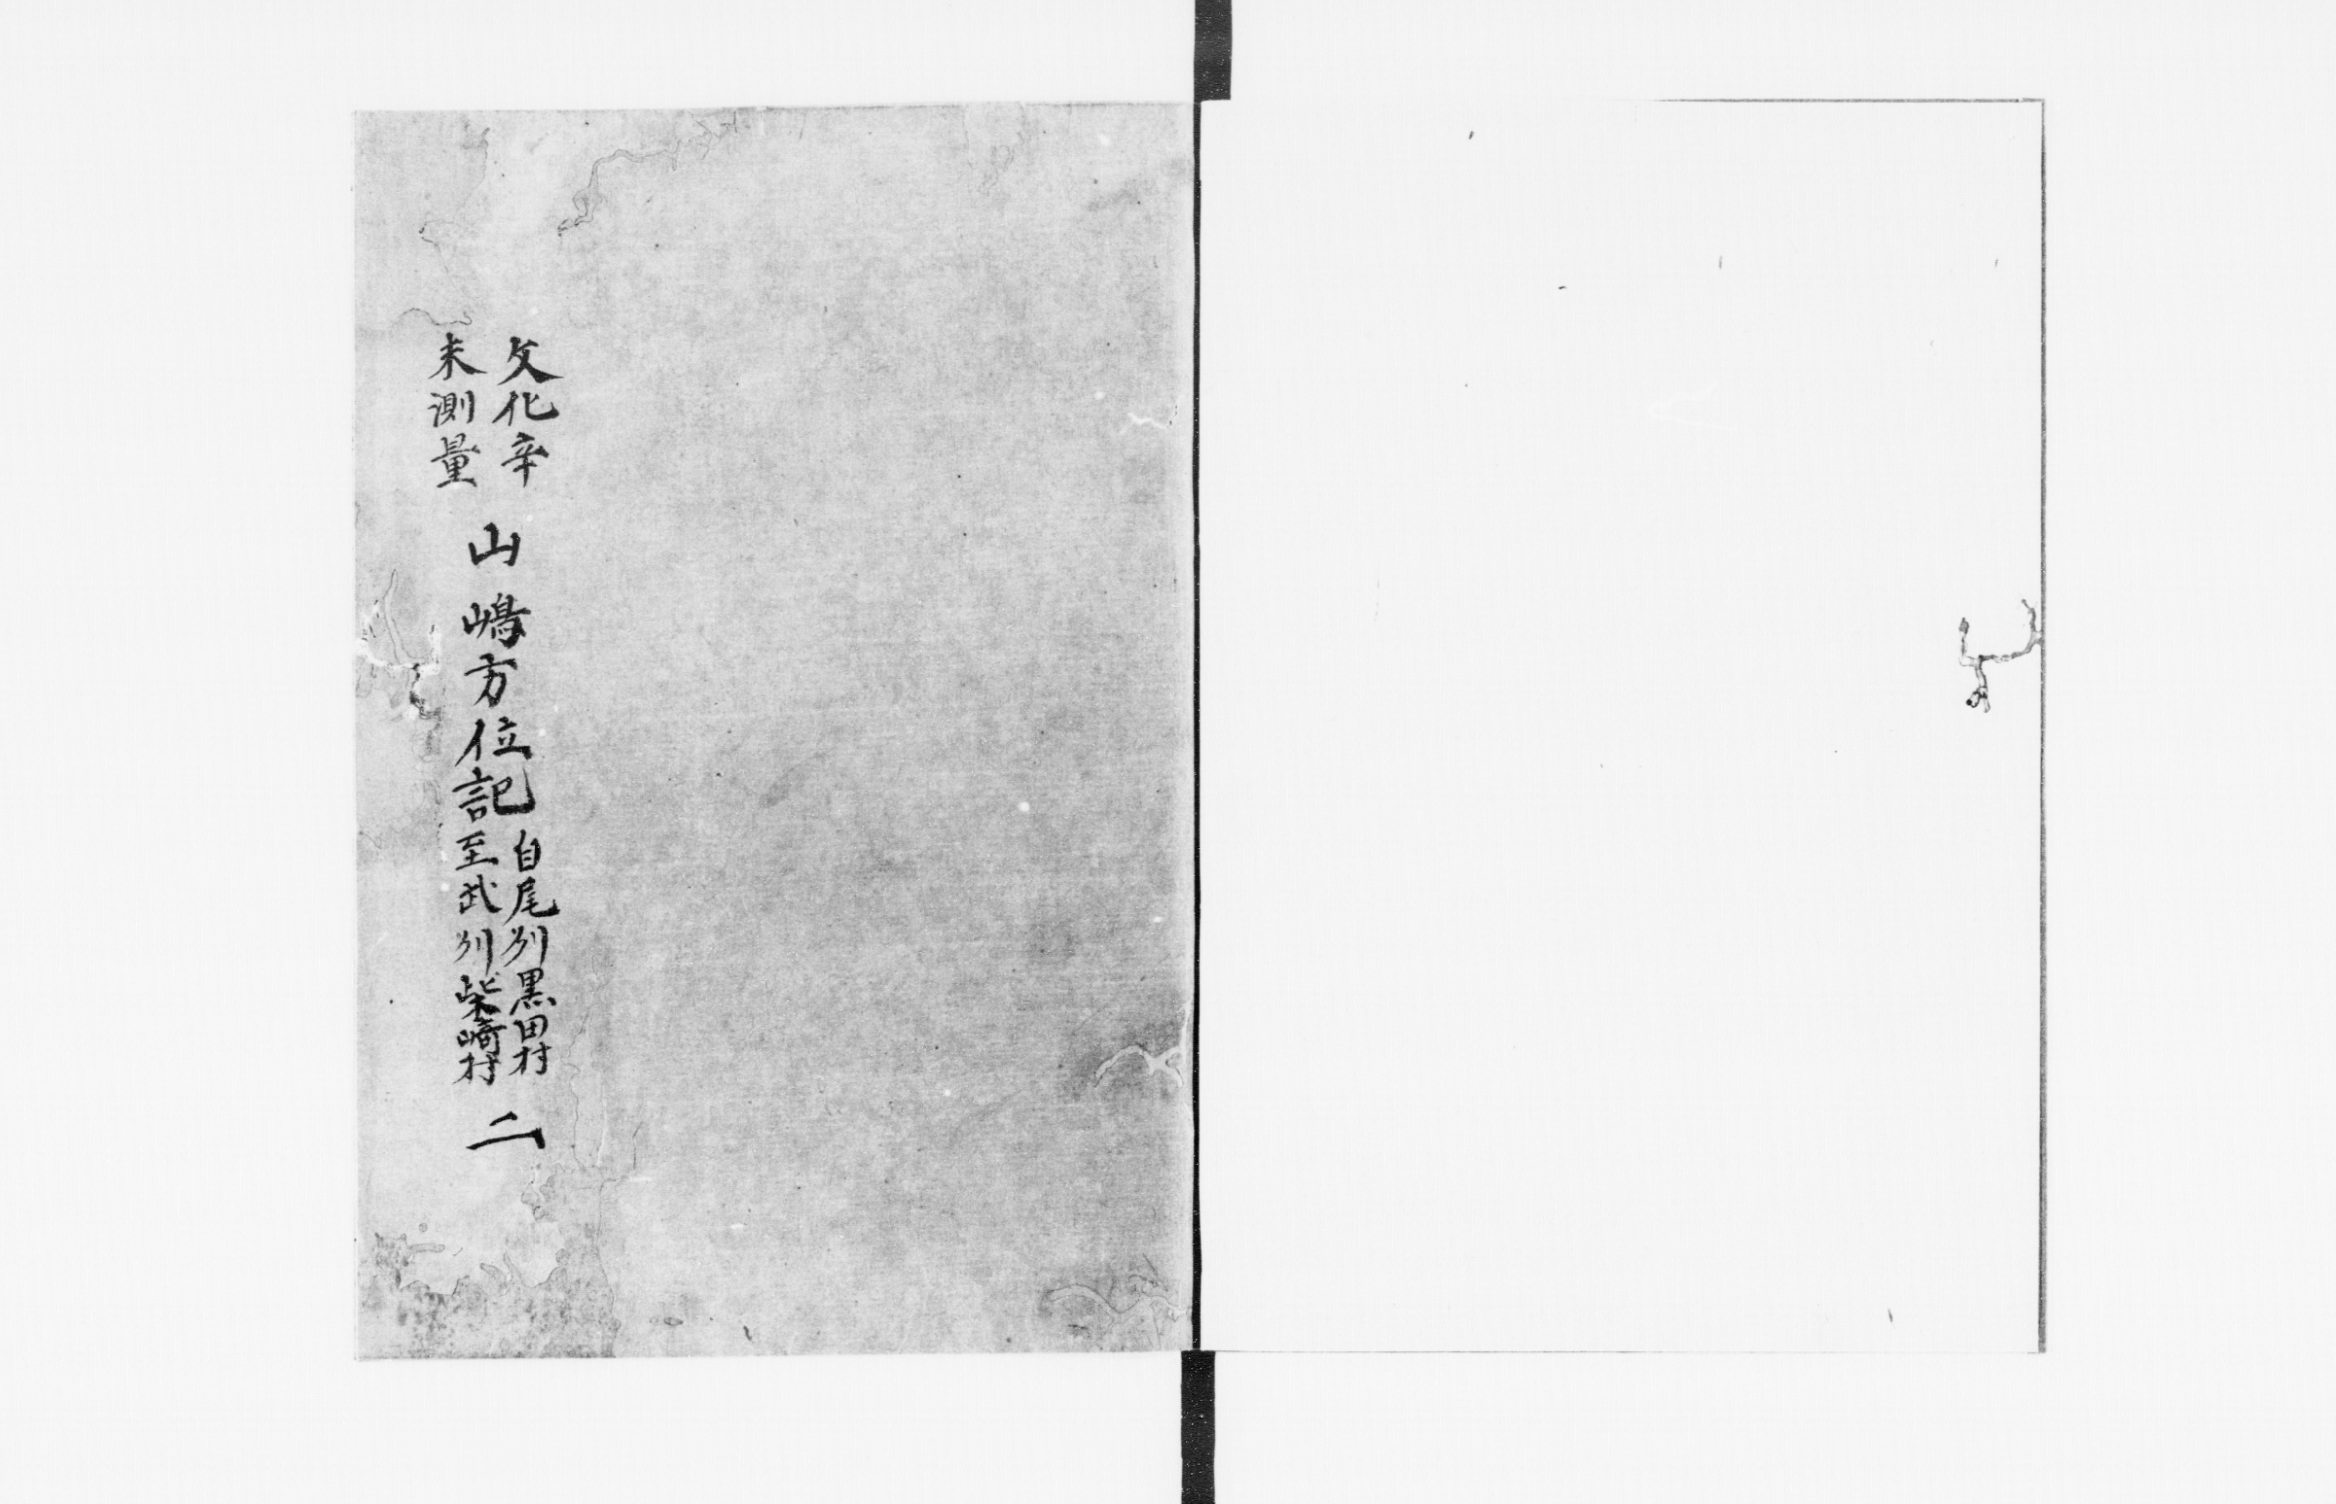 文化辛
未測量
山嶋方位記
自尾州黒田村
至武州柴崎村
二